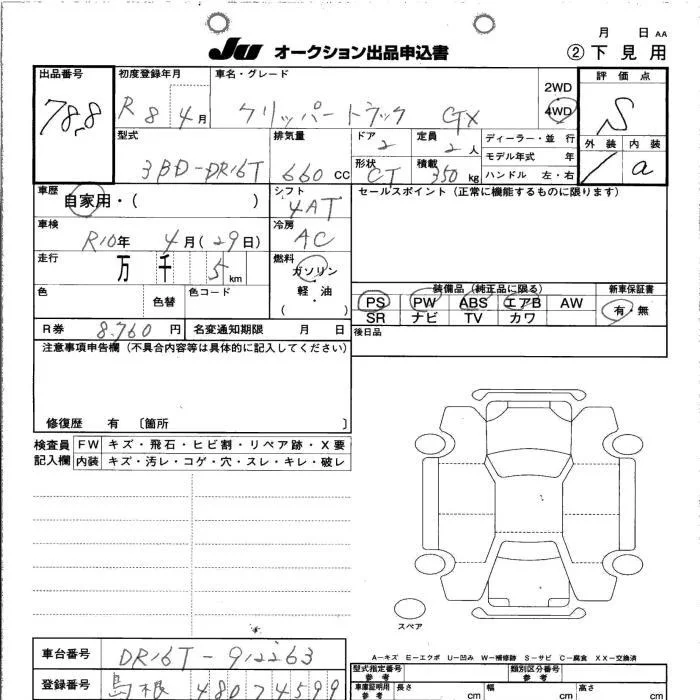 月 日 AA
JU オークション出品申込書 ②下見用
出品番号 初度登録年月 車名・グレード 評価点
788 R8 4月 クリッパートラック GX 2WD 4WD S
型式 排気量 ドア 定員 ディーラー・並 行 外装 内装
3BD-DR16T 660cc 2 2人 モデル年式 年 a
形状 積載 ハンドル 左・右
CT 350kg
車歴 シフト セールスポイント(正常に機能するものに限ります)
自家用・( ) 4AT
車検 冷房
R10年 4月(29日) AC
走行 燃料
万 千 5 km ガソリン
色 色替 色コード 軽・油
( )
装備品(純正品に限る) 新車保証書
PS PW ABS エアB AW 有・無
SR ナビ TV カワ
R券 8,760円 名変通知期限 月 日 後日品
注意事項申告欄(不具合内容等は具体的に記入してください)
修復歴 有 〔箇所 〕
検査員 FW キズ・飛石・ヒビ割・リペア跡・X要
記入欄 内装 キズ・汚レ・コゲ・穴・スレ・キレ・破レ
スペア
A-キズ E-エクボ U-凹み W-補修跡 S-サビ C-腐食 XX-交換済
車台番号 DR16T-912263
型式指定番号 参考 類別区分番号 参考
登録番号 島根 480 7 4599
車庫証明用 参考 長さ cm 幅 cm 高さ cm